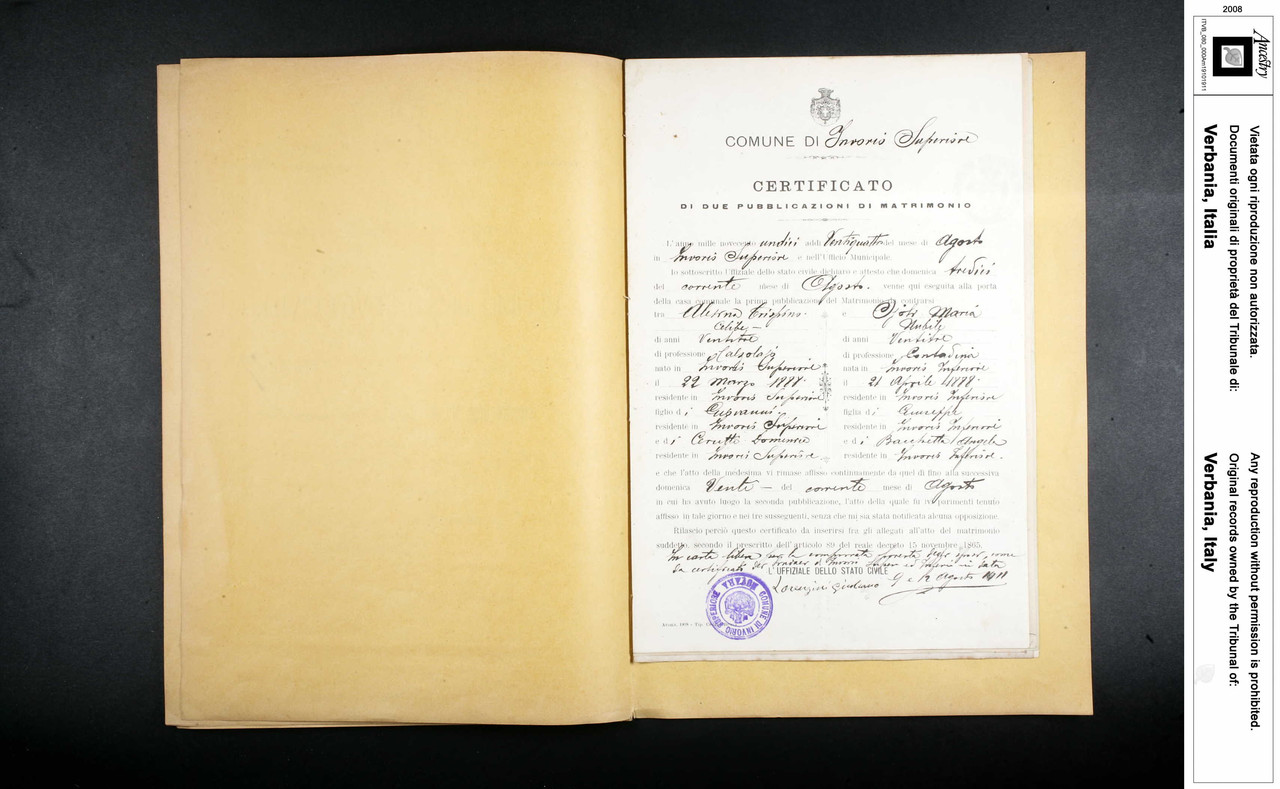 COMUNE DI Invorio Superiore
CERTIFICATO
DI DUE PUBBLICAZIONI DI MATRIMONIO
L'anno mille novecento undici addì Ventiquattro del mese di Agosto
in Invorio Superiore e nell'Ufficio Municipale.
Io sottoscritto Uffiziale dello stato civile dichiaro e attesto che domenica tredici
del corrente mese di Agosto. venne qui eseguita alla porta
della casa comunale la prima pubblicazione del Matrimonio da contrarsi
tra Crispino e Maria
Celibe - Nubile
di anni Ventitre di anni Ventitre
di professione Calzolajo di professione Contadina
nato in Invorio Superiore nata in Invorio Inferiore
il 22 Marzo 1888 il 21 Aprile 1888.
residente in Invorio Superiore residente in Invorio Inferiore
figlio di Giovanni figlia di Giuseppe
residente in Invorio Superiore residente in Invorio Inferiore
e di Cerutti Domenica e di Bacchetta Angela
residente in Invorio Superiore residente in Invorio Inferiore.
e che l'atto della medesima vi rimase affisso continuamente da quel dì fino alla successiva
domenica Venti - del corrente mese di Agosto
in cui ha avuto luogo la seconda pubblicazione, l'atto della quale fu re parimenti tenuto
affisso in tale giorno e nei tre susseguenti, senza che mi sia stata notificata alcuna opposizione.
Rilascio perciò questo certificato da inserirsi fra gli allegati all'atto del matrimonio
suddetto, secondo il prescritto dell'articolo 89 del reale decreto 15 novembre 1865.
In carta libera per la comprovata povertà degli sposi, come
da certificato dei Sindaci di Invorio Super ed Inferiore in data
L'UFFIZIALE DELLO STATO CIVILE 9 e 12 Agosto 1911
Giuliano
COMUNE DI INVORIO SUPERIORE
NOVARA
2008
Ancestry
ITVB_080_003Am19101911
Vietata ogni riproduzione non autorizzata.
Documenti originali di proprietà del Tribunale di:
Verbania, Italia
Any reproduction without permission is prohibited.
Original records owned by the Tribunal of:
Verbania, Italy